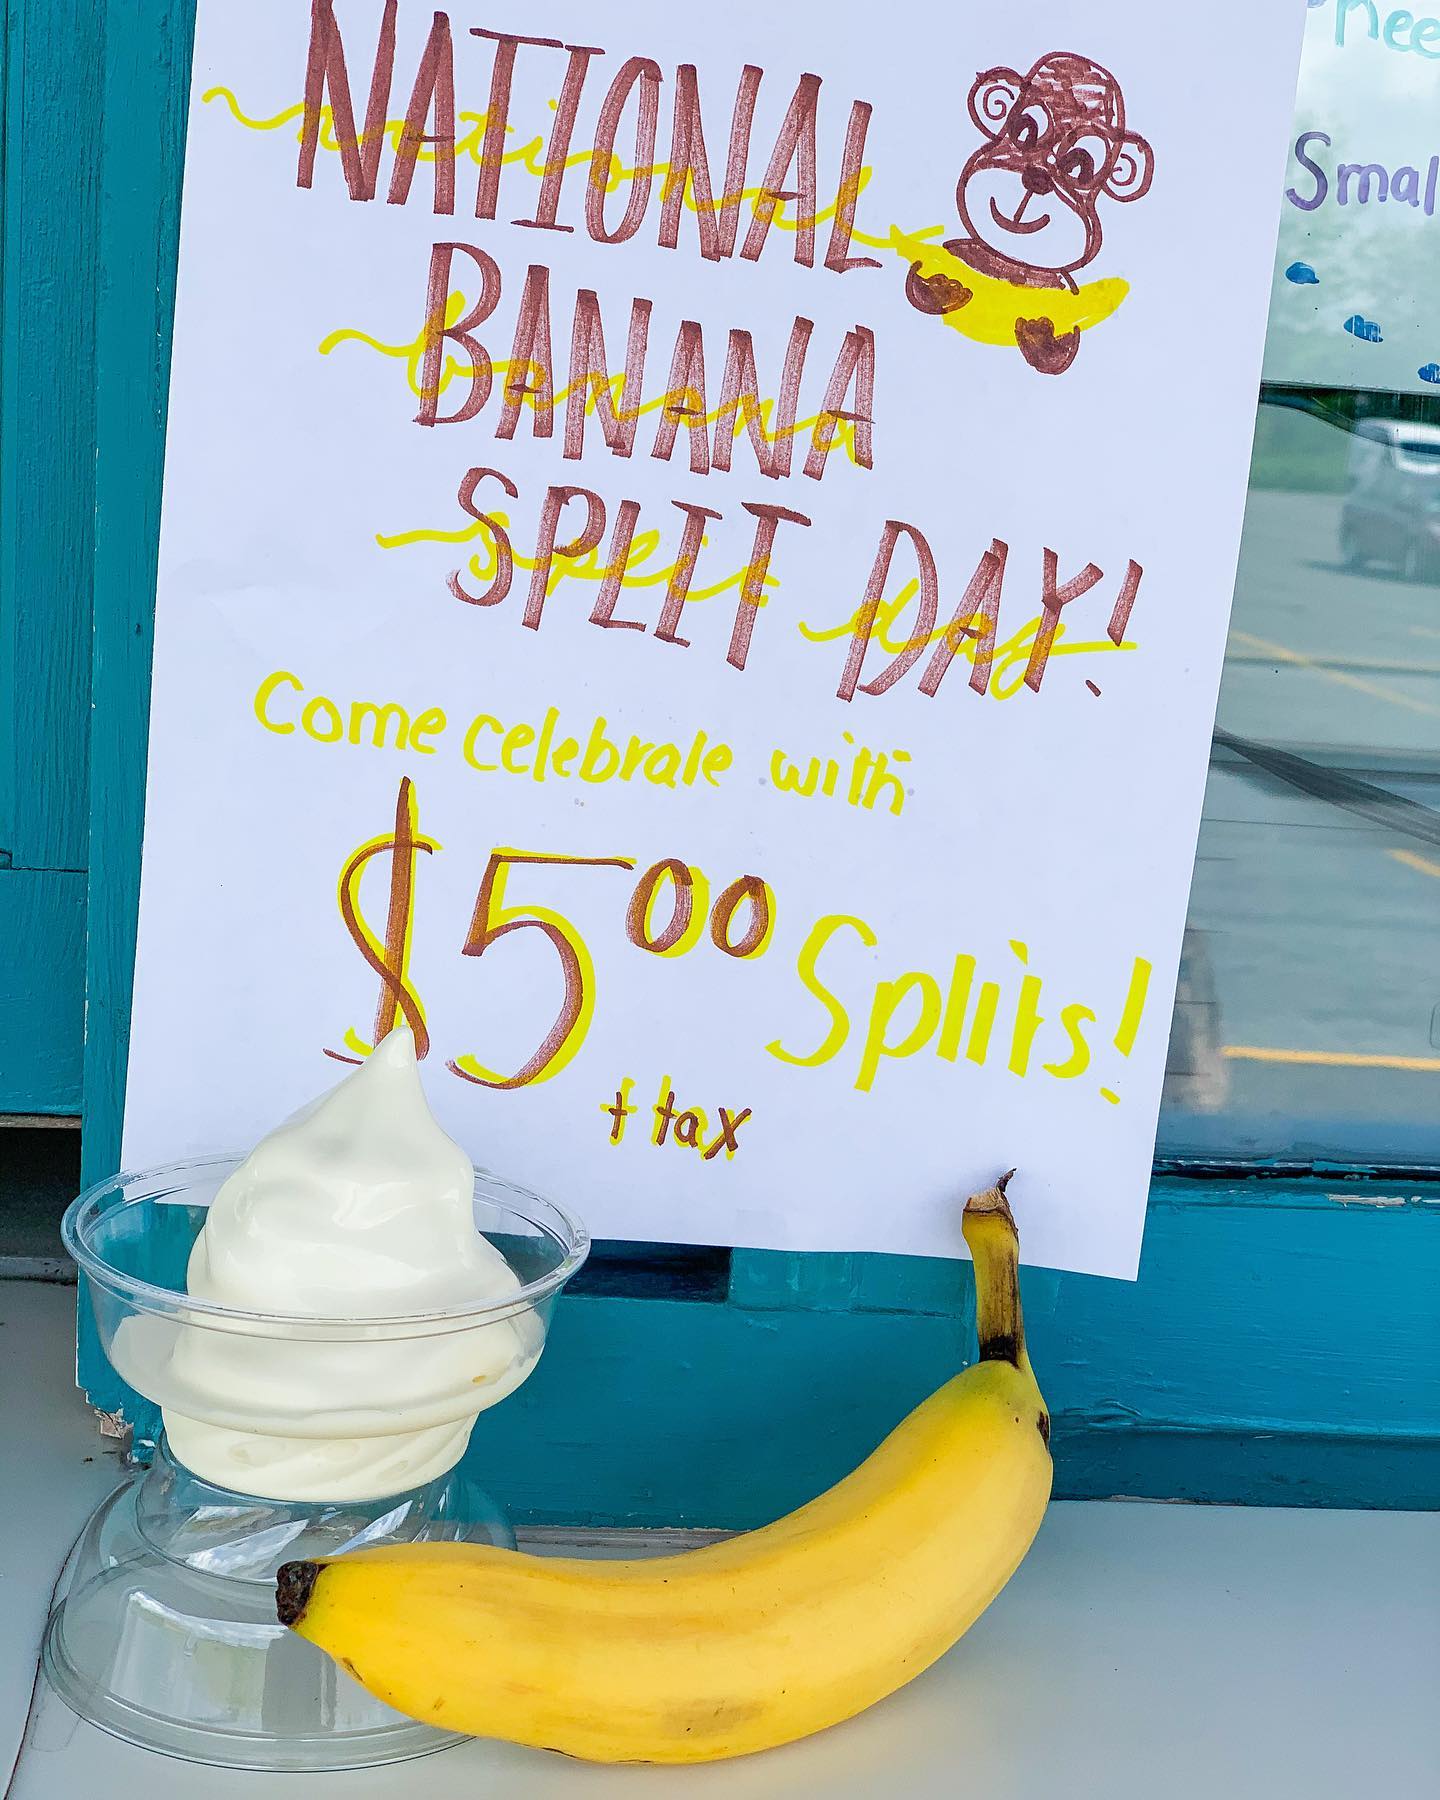 NATIONAL
national
BANANA
banana
SPLIT DAY!
split day
Come celebrate with
$5.00 Splits!
+ tax
Smal